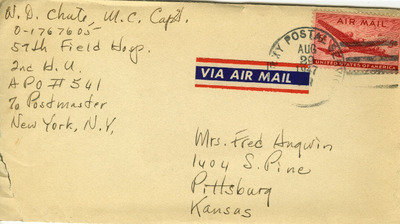 W. D. Chute, M.C. Capt.
O-1767605
57th Field Hosp.
2nd H.U.
APO # 541
℅ Postmaster
New York, N.Y.
VIA AIR MAIL
POSTAL
AUG
29
AIR MAIL
UNITED STATES OF AMERICA
Mrs. Fred Angwin
1404 S. Pine
Pittsburg
Kansas